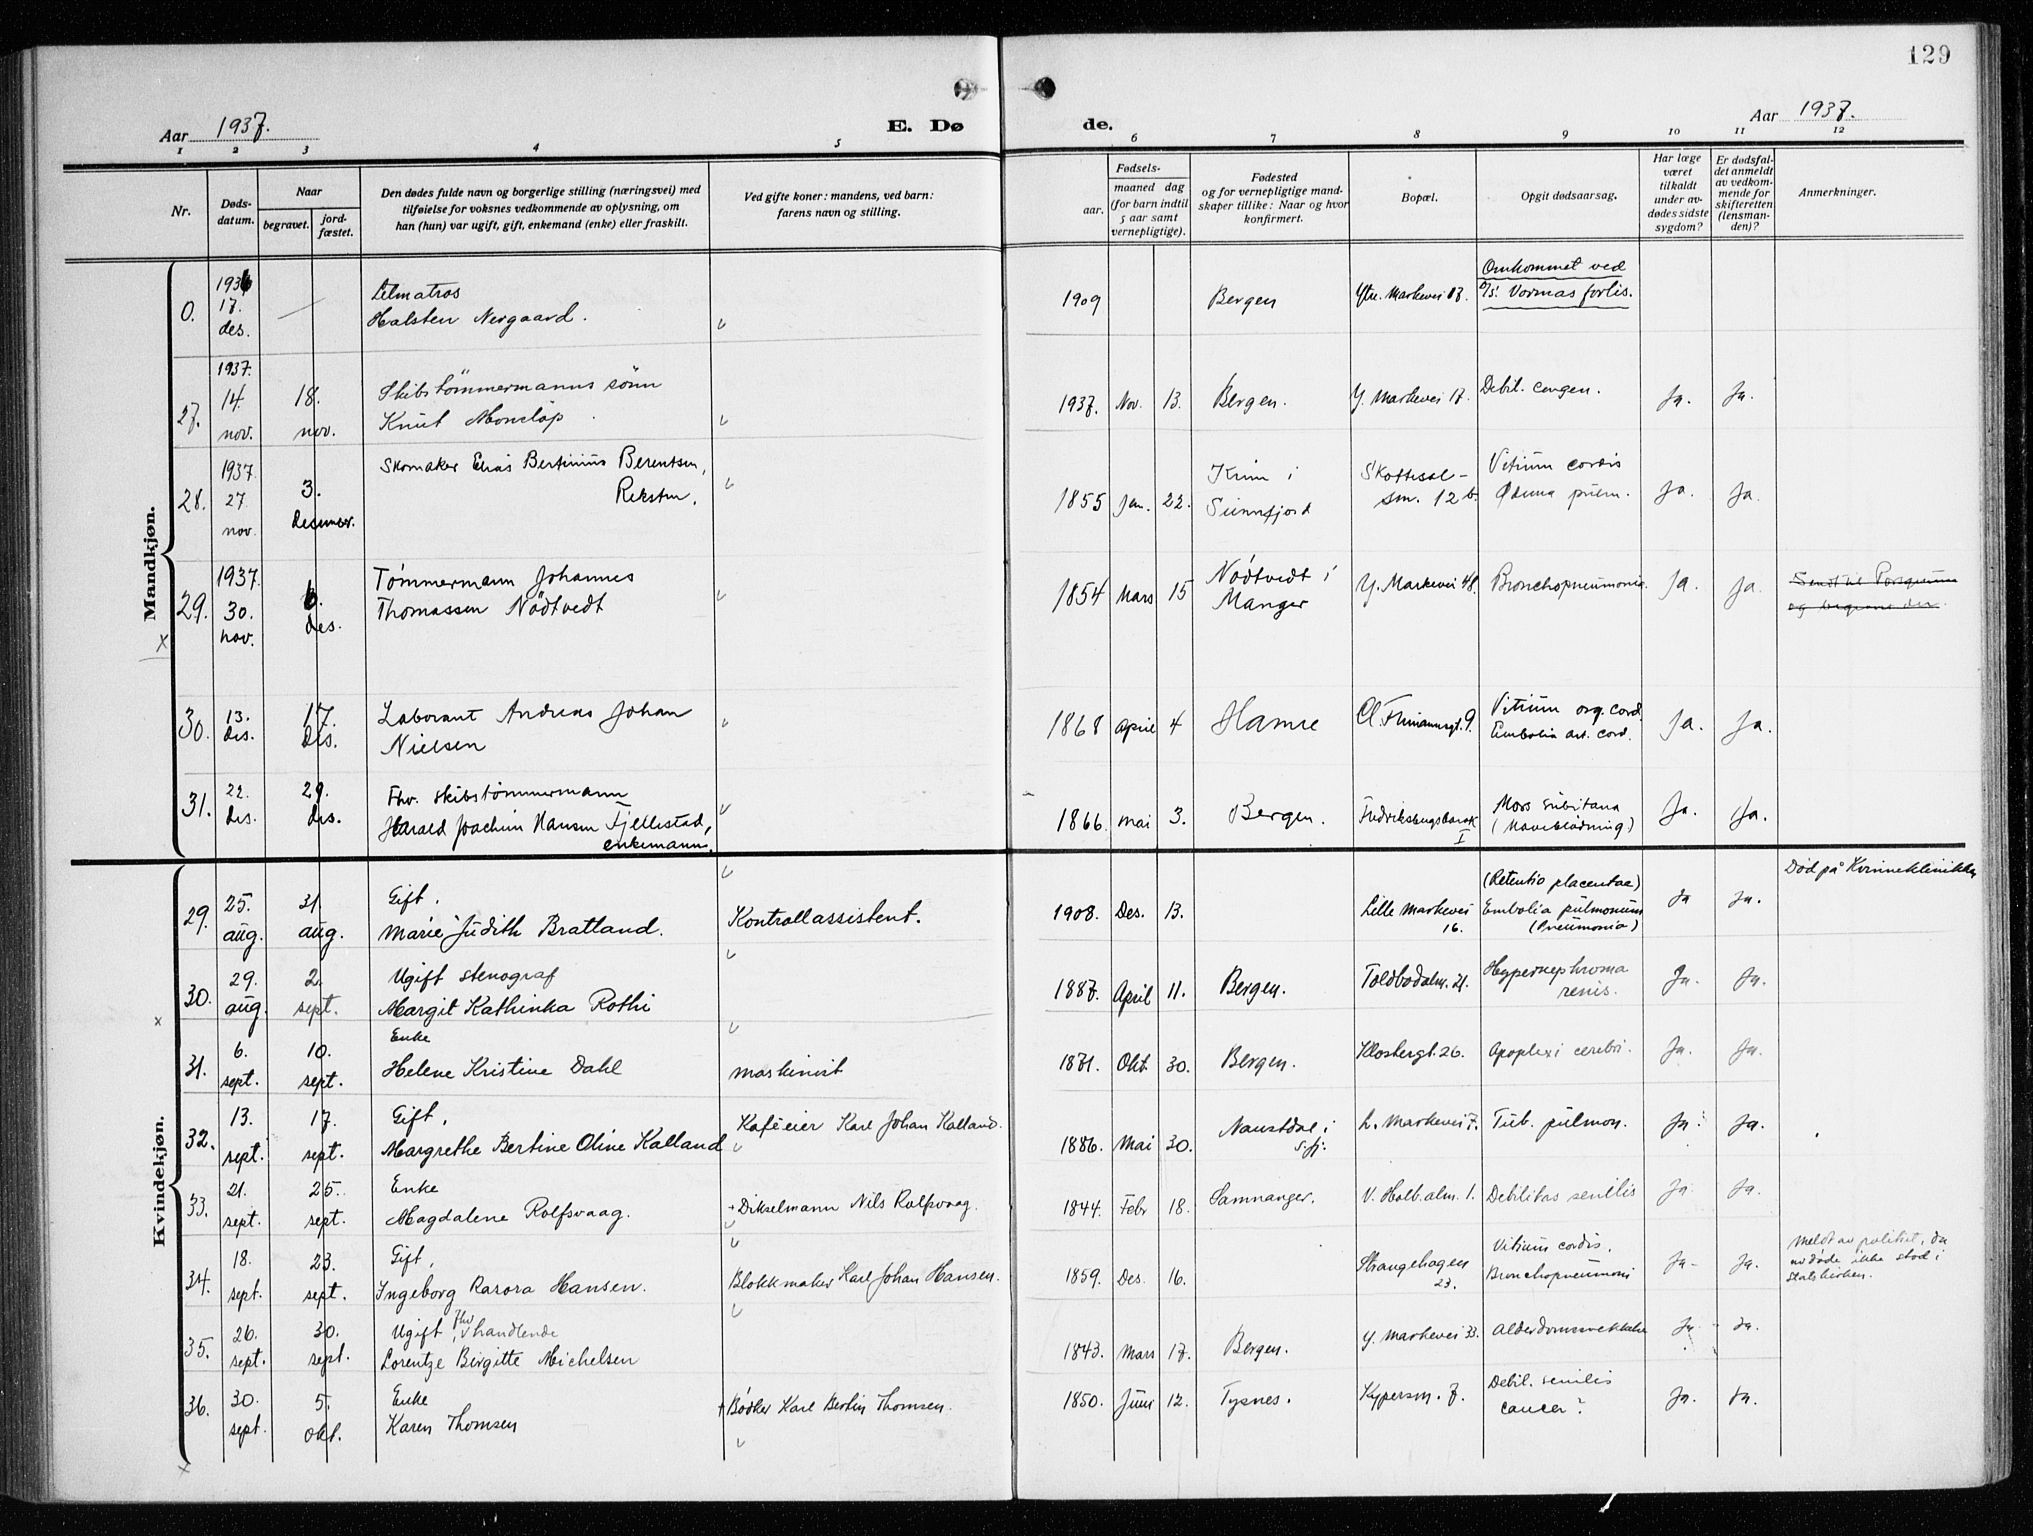 129
Aar 1937. E. Dø de. Aar 1937.
1 2 3 4 5 6 7 8 9 10 11 12
Nr.
Døds-
datum.
Naar
begravet.
jord-
fæstet.
Den dødes fulde navn og borgerlige stilling (næringsvei) med
tilføielse for voksnes vedkommende av oplysning, om
han (hun) var ugift, gift, enkemand (enke) eller fraskilt.
Ved gifte koner: mandens, ved barn:
farens navn og stilling.
Fødsels-
aar.
maaned dag
(for barn indtil
5 aar samt
vernepligtige).
Fødested
og for vernepligtige mand-
skaper tillike: Naar og hvor
konfirmert.
Bopæl.
Opgit dødsaarsag.
Har læge
været
tilkaldt
under av-
dødes sidste
sygdom?
Er dødsfal-
det anmeldt
av vedkom-
mende for
skifteretten
(lensman-
den)?
Anmerkninger.
Mandkjøn.
0. 1936 17. des. — Letmatros
Halsten Nergaard.
1909 Bergen Ytre. Markevei 17. Omkommet ved
D/S! Vormas forlis.
27. 1937. 14. nov. 18. nov. Skibstømmermanns sønn
Knut Monclap.
1937. Nov. 13. Bergen. Y. Markevei 17. Debil. congen. Ja. Ja.
28. 1937 27 nov. 3. desember. Skomaker Elias Bertinius Berentsen,
Reksten.
1855 Jan. 22. Kinn i
Sunnfjord
Skottesal-
sm. 12 b.
Vitium cordis
Ødema pulm.
Ja. Ja.
29. 1937. 30. nov. 6. des. Tømmermann Johannes
Thomassen Nödtvedt
1854 Mars 15 Nödtvedt i
Manger
Y. Markevei 48. Bronchopneumonia. Ja. Ja.
30. 13. des. 17. des. Laborant Andreas Johan
Nielsen
1868 April 4 Hamre Vitium org. cord.
Embolia art. cord.
Ja. Ja.
31. 22. des. 29. des. Fhv. skibstømmermann
Harald Joachim Hansen Fjellestad,
enkemann.
1866. mai 3. Bergen. Fredriksbergsbarak
I
Mors subitana
(Maveblødning)
Ja. Ja.
Kvindekjøn.
29. 25. aug. 31. aug. Gift.
Marie Judith Bratland.
Kontrollassistent.
1908. Des. 13. Lille Markevei
16.
(Retentio placentae)
Embolia pulmonum
(Pneumonia)
Ja Ja. Død på Kvinneklinikken
30. 29. aug. 2. sept. Ugift stenograf
Margit Kathinka Rothi
1887. April 11. Bergen. Toldbodalm. 21. Hypernephroma
renis.
Ja. Ja.
31. 6. sept. 10. sept. Enke
Helene Kristine Dahl
maskinist
1871. Okt. 30. Bergen. Klostergt. 26. Apoplexi cerebri. Ja. Ja.
32. 13. sept. 17. sept. Gift.
Margrethe Bertine Oline Kalland
Kaféeier Karl Johan Kalland.
1886. Mai 30. Naustdal i
S.fj.
L. Markevei 7. Tub. pulmon. Ja. Ja.
33. 21. sept. 25. sept. Enke
Magdalene Rolfsvaag.
+ Dikselmann Nils Rolfsvaag.
1844. Febr 18. Samnanger. V. Holb. alm. 1. Debilitas senilis Ja Ja.
34. 18. sept. 23. sept. Gift.
Ingeborg Rasora Hansen.
Blokkmaker Karl Johan Hansen.
1859. Des. 16. Strangehagen
23.
Vitium cordis.
Bronchopneumoni
Ja. Ja. Meldt av politiet, da
avdøde ikke stod i
statskirken.
35. 26. sept. 30. sept. Ugift, fhv. handlende
Lorentze Birgitte Michelsen
1843. Mars 17. Bergen. Y. Markevei 33. Alderdomssvekkelse Ja. Ja.
36. 30. sept. 5. okt. Enke
Karen Thomsen
+ Bødker Karl Berlin Thomsen.
1850. Juni 12. Tysnes. Kypersm. 7. Debil. senilis
cancer?
Ja. Ja.